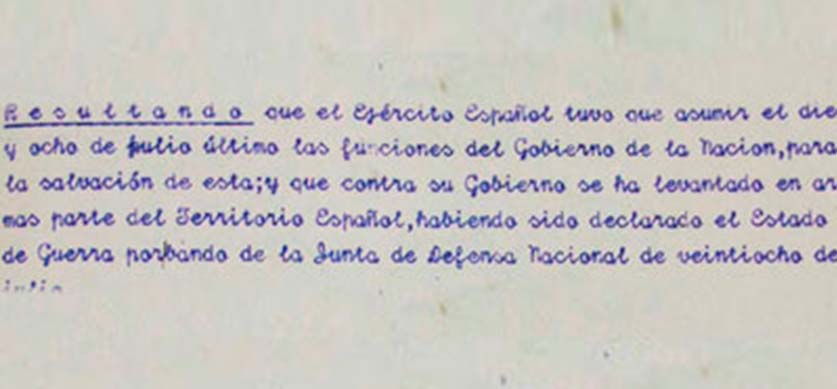 Resultando que el Ejército Español tuvo que asumir el die
y ocho de julio último las funciones del Gobierno de la Nacion,para
la salvación de esta;y que contra su Gobierno se ha levantado en ar
mas parte del Territorio Español,habiendo sido declarado el Estado
de Guerra por bando de la Junta de Defensa Nacional de veintiocho de